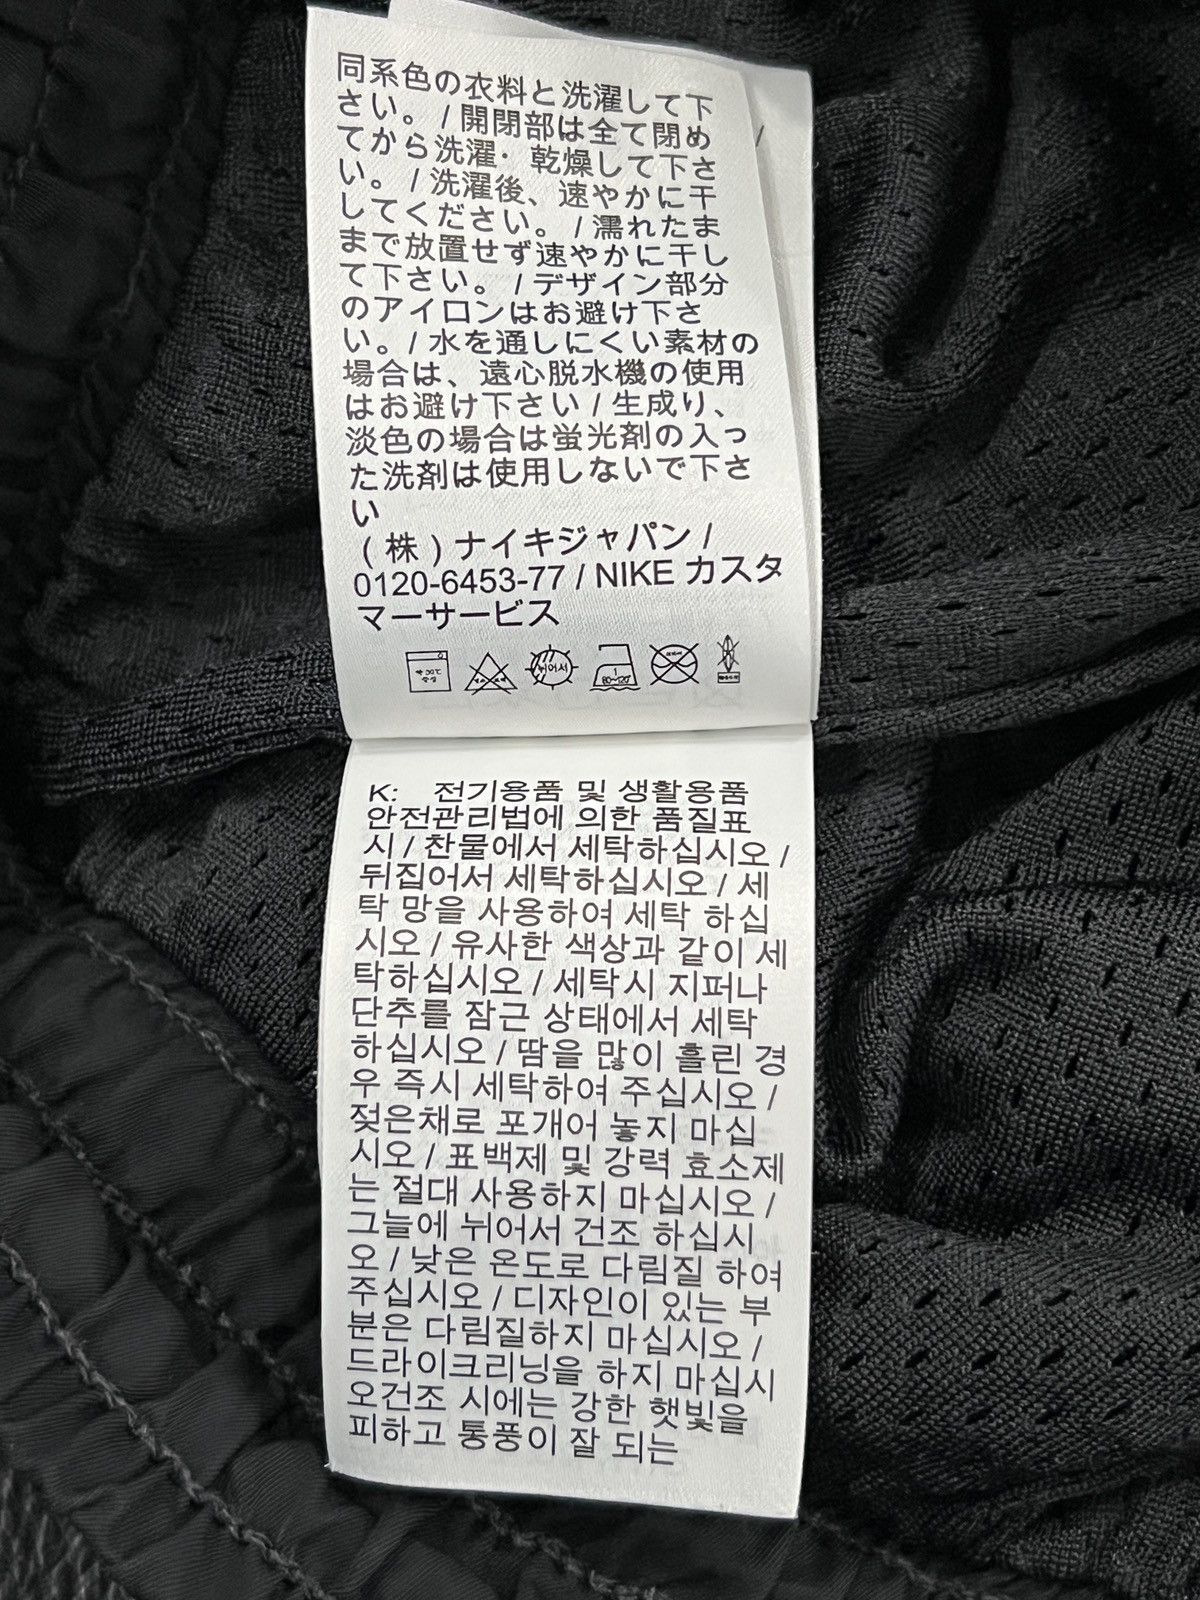 同系色の衣料と洗濯して下
さい。 / 開閉部は全て閉め
てから洗濯・乾燥して下さ
い。 / 洗濯後、速やかに干
してください。 / 濡れたま
まで放置せず速やかに干し
て下さい。 / デザイン部分
のアイロンはお避け下さ
い。 / 水を通しにくい素材の
場合は、遠心脱水機の使用
はお避け下さい / 生成り、
淡色の場合は蛍光剤の入っ
た洗剤は使用しないで下さ
い
(株)ナイキジャパン /
0120-6453-77 / NIKE カスタ
マーサービス
뉘어서 1 80~120°
K: 전기용품 및 생활용품
안전관리법에 의한 품질표
시 / 찬물에서 세탁하십시오 /
뒤집어서 세탁하십시오 / 세
탁 망을 사용하여 세탁 하십
시오 / 유사한 색상과 같이 세
탁하십시오 / 세탁시 지퍼나
단추를 잠근 상태에서 세탁
하십시오 / 땀을 많이 흘린 경
우 즉시 세탁하여 주십시오 /
젖은채로 포개어 놓지 마십
시오 / 표백제 및 강력 효소제
는 절대 사용하지 마십시오 /
그늘에 뉘어서 건조 하십시
오 / 낮은 온도로 다림질 하여
주십시오 / 디자인이 있는 부
분은 다림질하지 마십시오 /
드라이크리닝을 하지 마십시
오건조 시에는 강한 햇빛을
피하고 통풍이 잘 되는